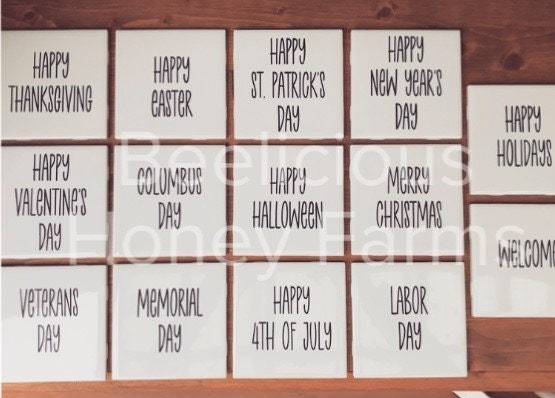 HAPPY
THANKSGIVING
HAPPY
EASTER
HAPPY
ST. PATRICK'S
DAY
HAPPY
NEW YEAR'S
DAY
HAPPY
HOLIDAYS
HAPPY
VALENTINE'S
DAY
COLUMBUS
DAY
HAPPY
HALLOWEEN
MERRY
CHRISTMAS
WELCOME
VETERANS
DAY
MEMORIAL
DAY
HAPPY
4TH OF JULY
LABOR
DAY
Beelicious
Honey Farms